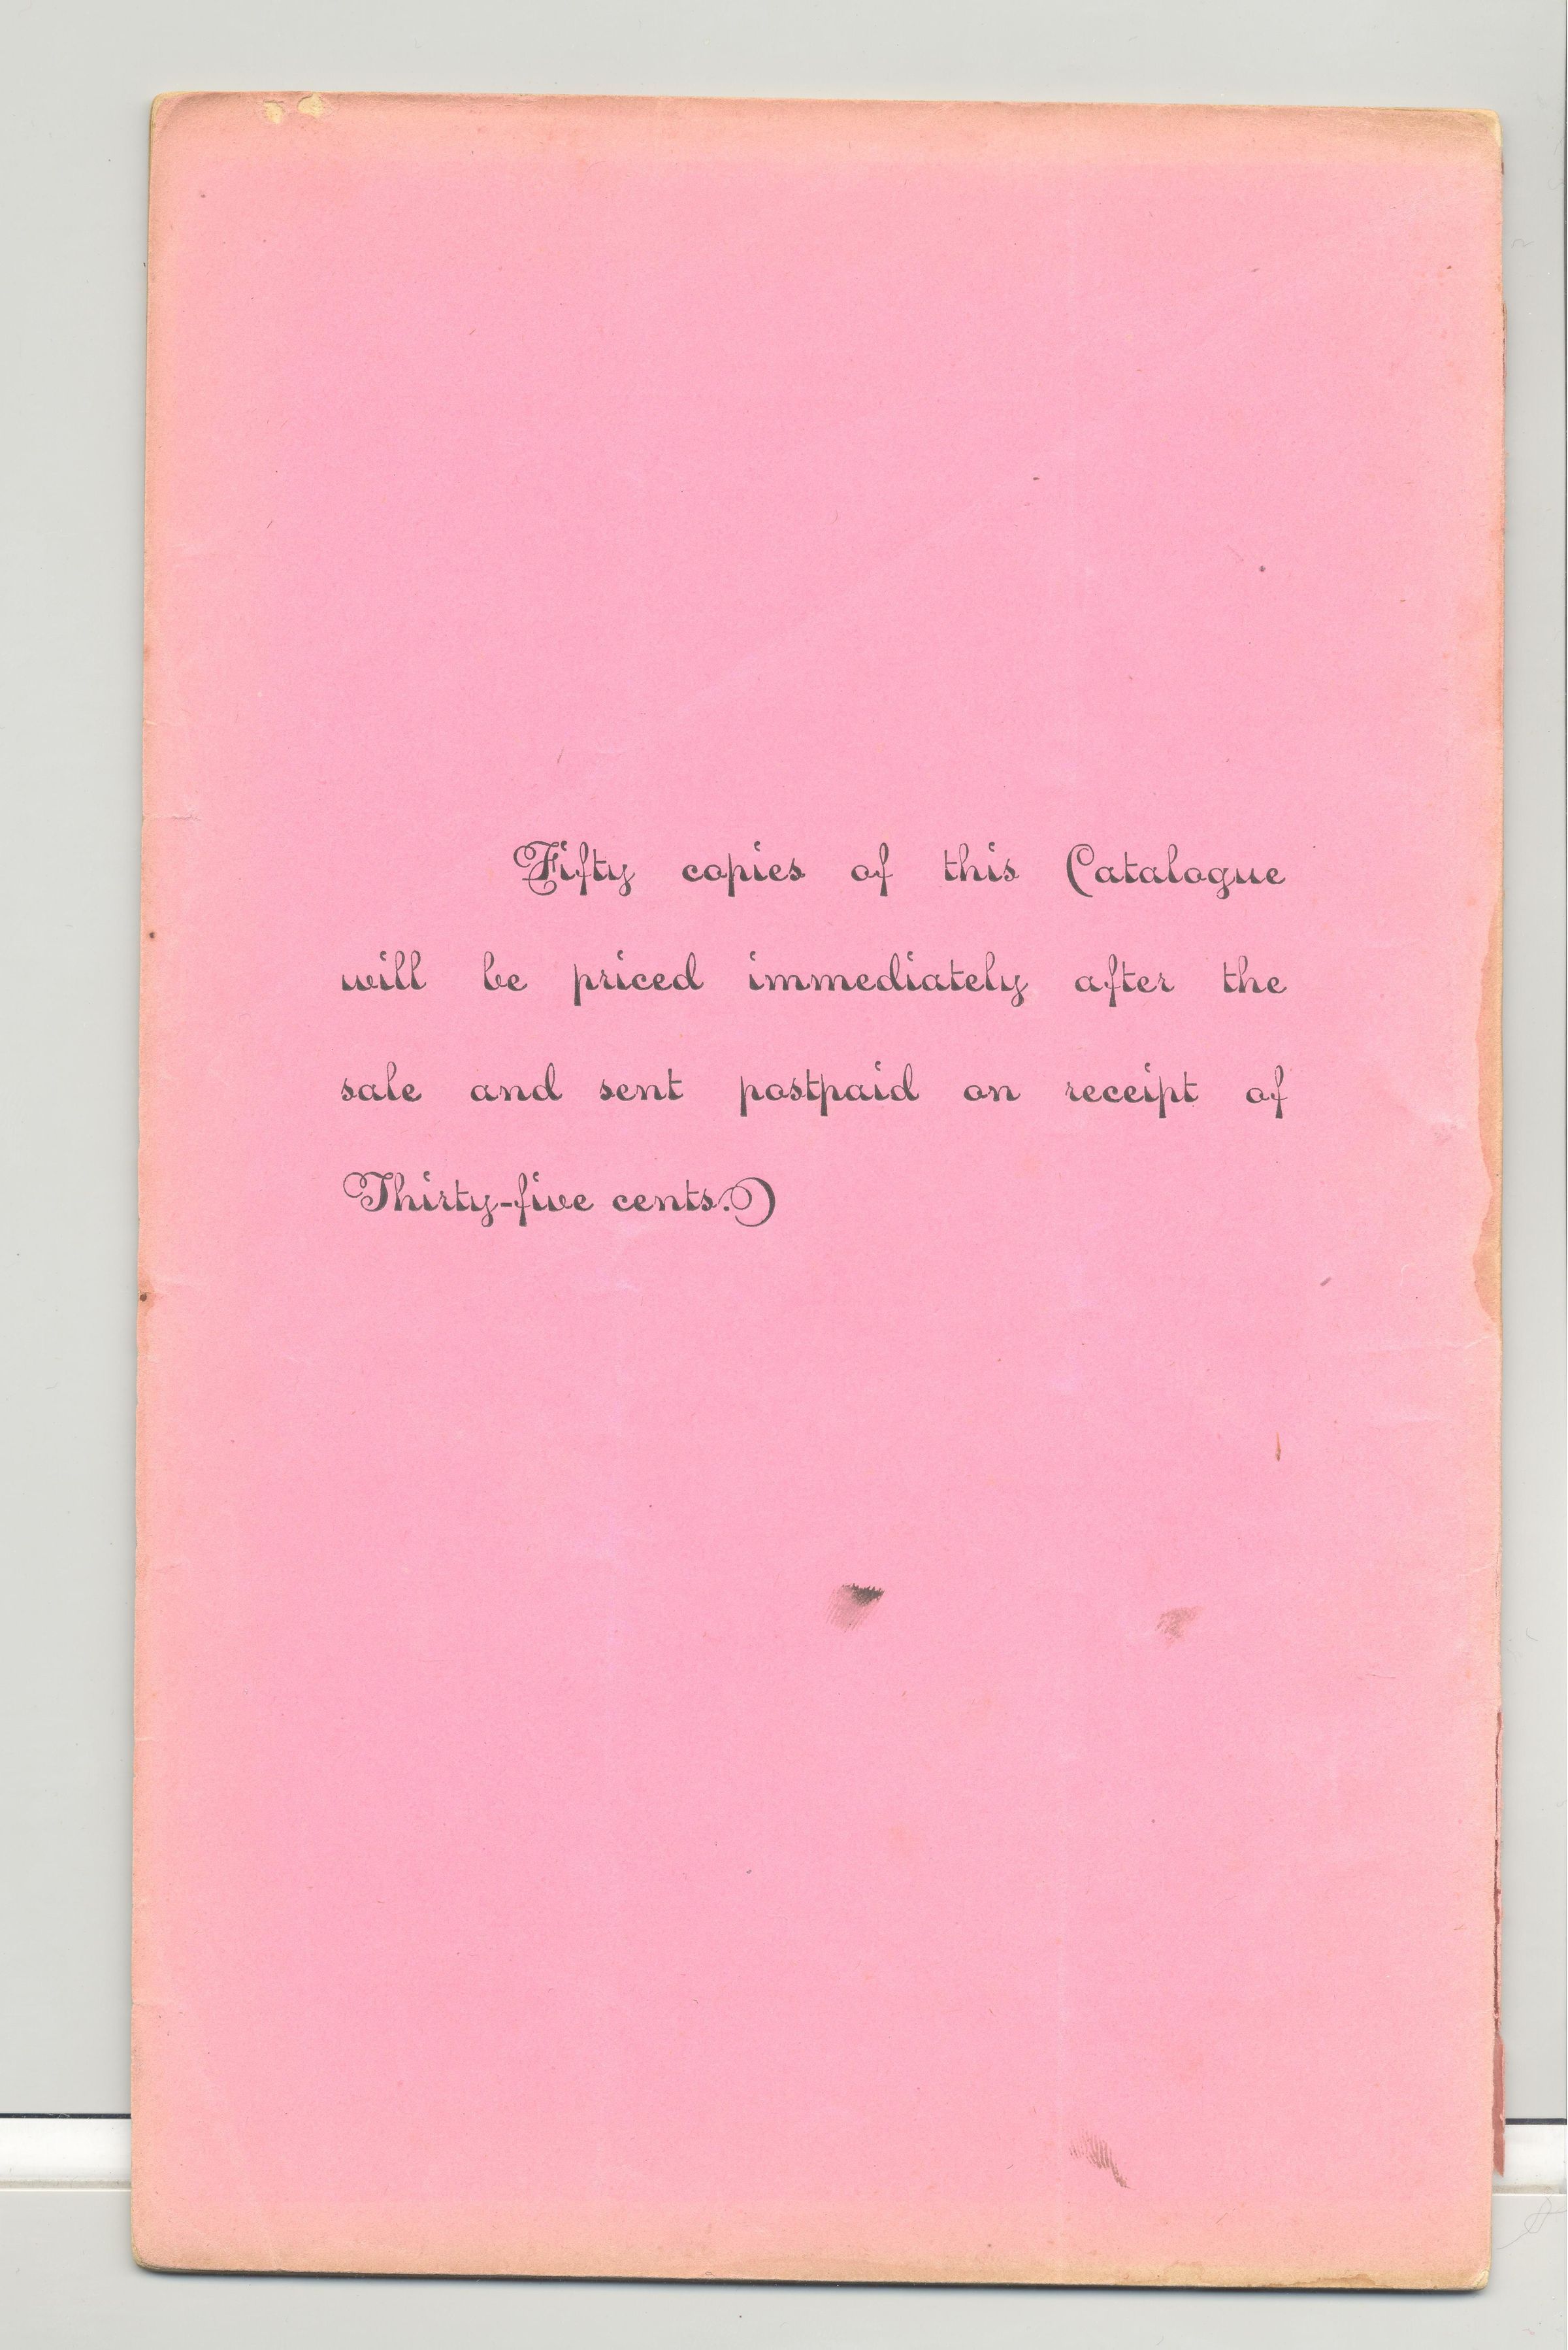 Fifty copies of this Catalogue
will be priced immediately after the
sale and sent postpaid on receipt of
Thirty-five cents.